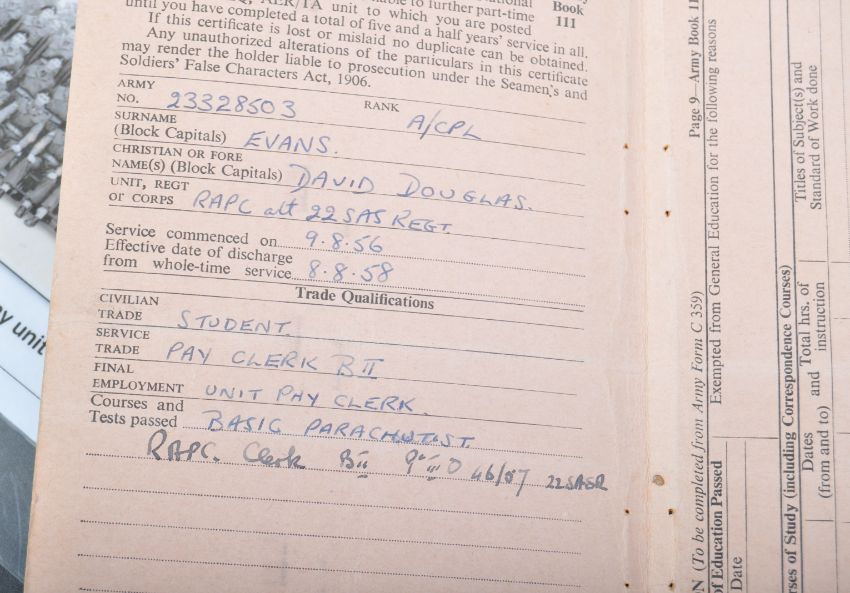 to further part-time
unit to which you are posted
until you have completed a total of five and a half years' service in all.
If this certificate is lost or mislaid no duplicate can be obtained.
Any unauthorized alterations of the particulars in this certificate
may render the holder liable to prosecution under the Seamen's and
Soldiers' False Characters Act, 1906.
Book
111
ARMY
NO. 23328503 RANK A/CPL
SURNAME
(Block Capitals) EVANS.
CHRISTIAN OR FORE
NAME(S) (Block Capitals) DAVID DOUGLAS.
UNIT, REGT
or CORPS RAPC att 22 SAS REGT.
Service commenced on 9.8.56
Effective date of discharge
from whole-time service 8.8.58
Trade Qualifications
CIVILIAN
TRADE STUDENT
SERVICE
TRADE PAY CLERK B II
FINAL
EMPLOYMENT UNIT PAY CLERK.
Courses and
Tests passed BASIC PARACHUTIST.
RAPC. Clerk BII 46/57 22SASR
y unit
Page 9—Army Book 11
Exempted from General Education for the following reasons
Titles of Subject(s) and
Standard of Work done
N (To be completed from Army Form C 359)
of Education Passed
Date
rses of Study (including Correspondence Courses)
Dates and Total hrs. of
(from and to) instruction